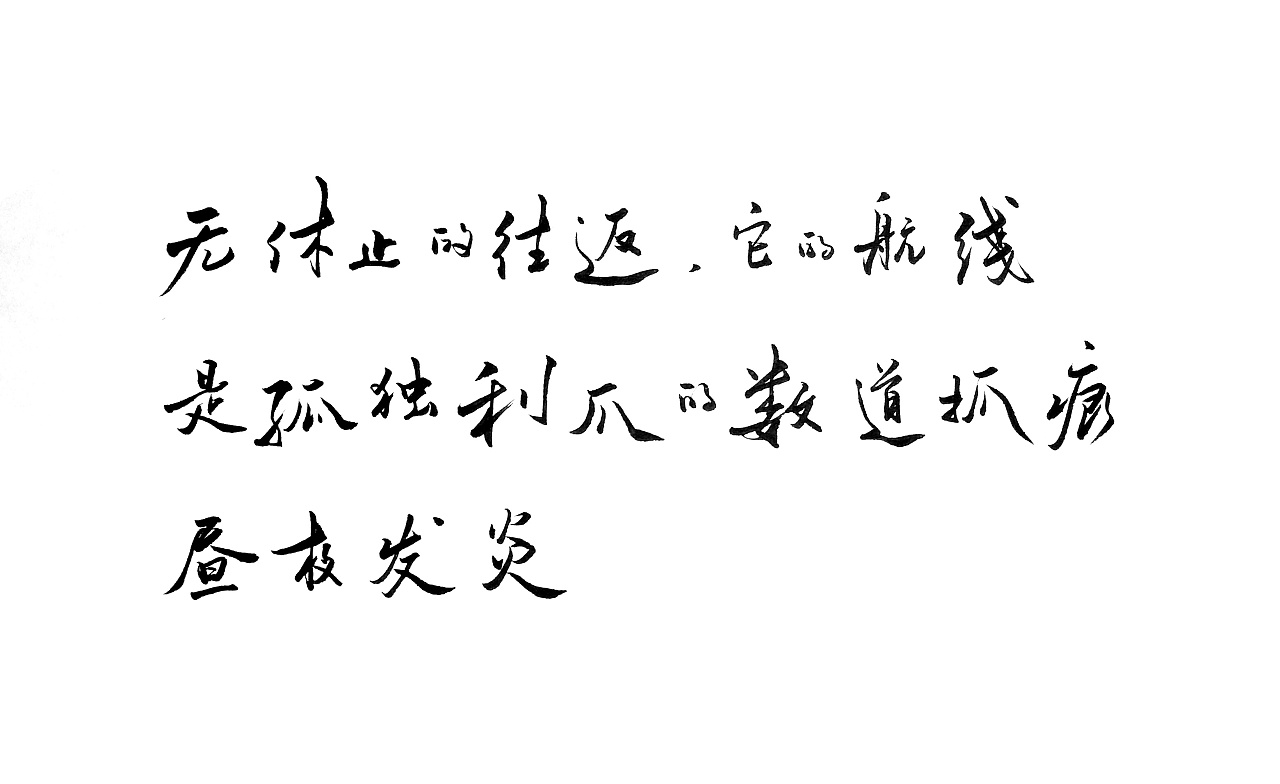 无休止的往返，它的航线
是孤独利爪的数道抓痕
昼夜发炎